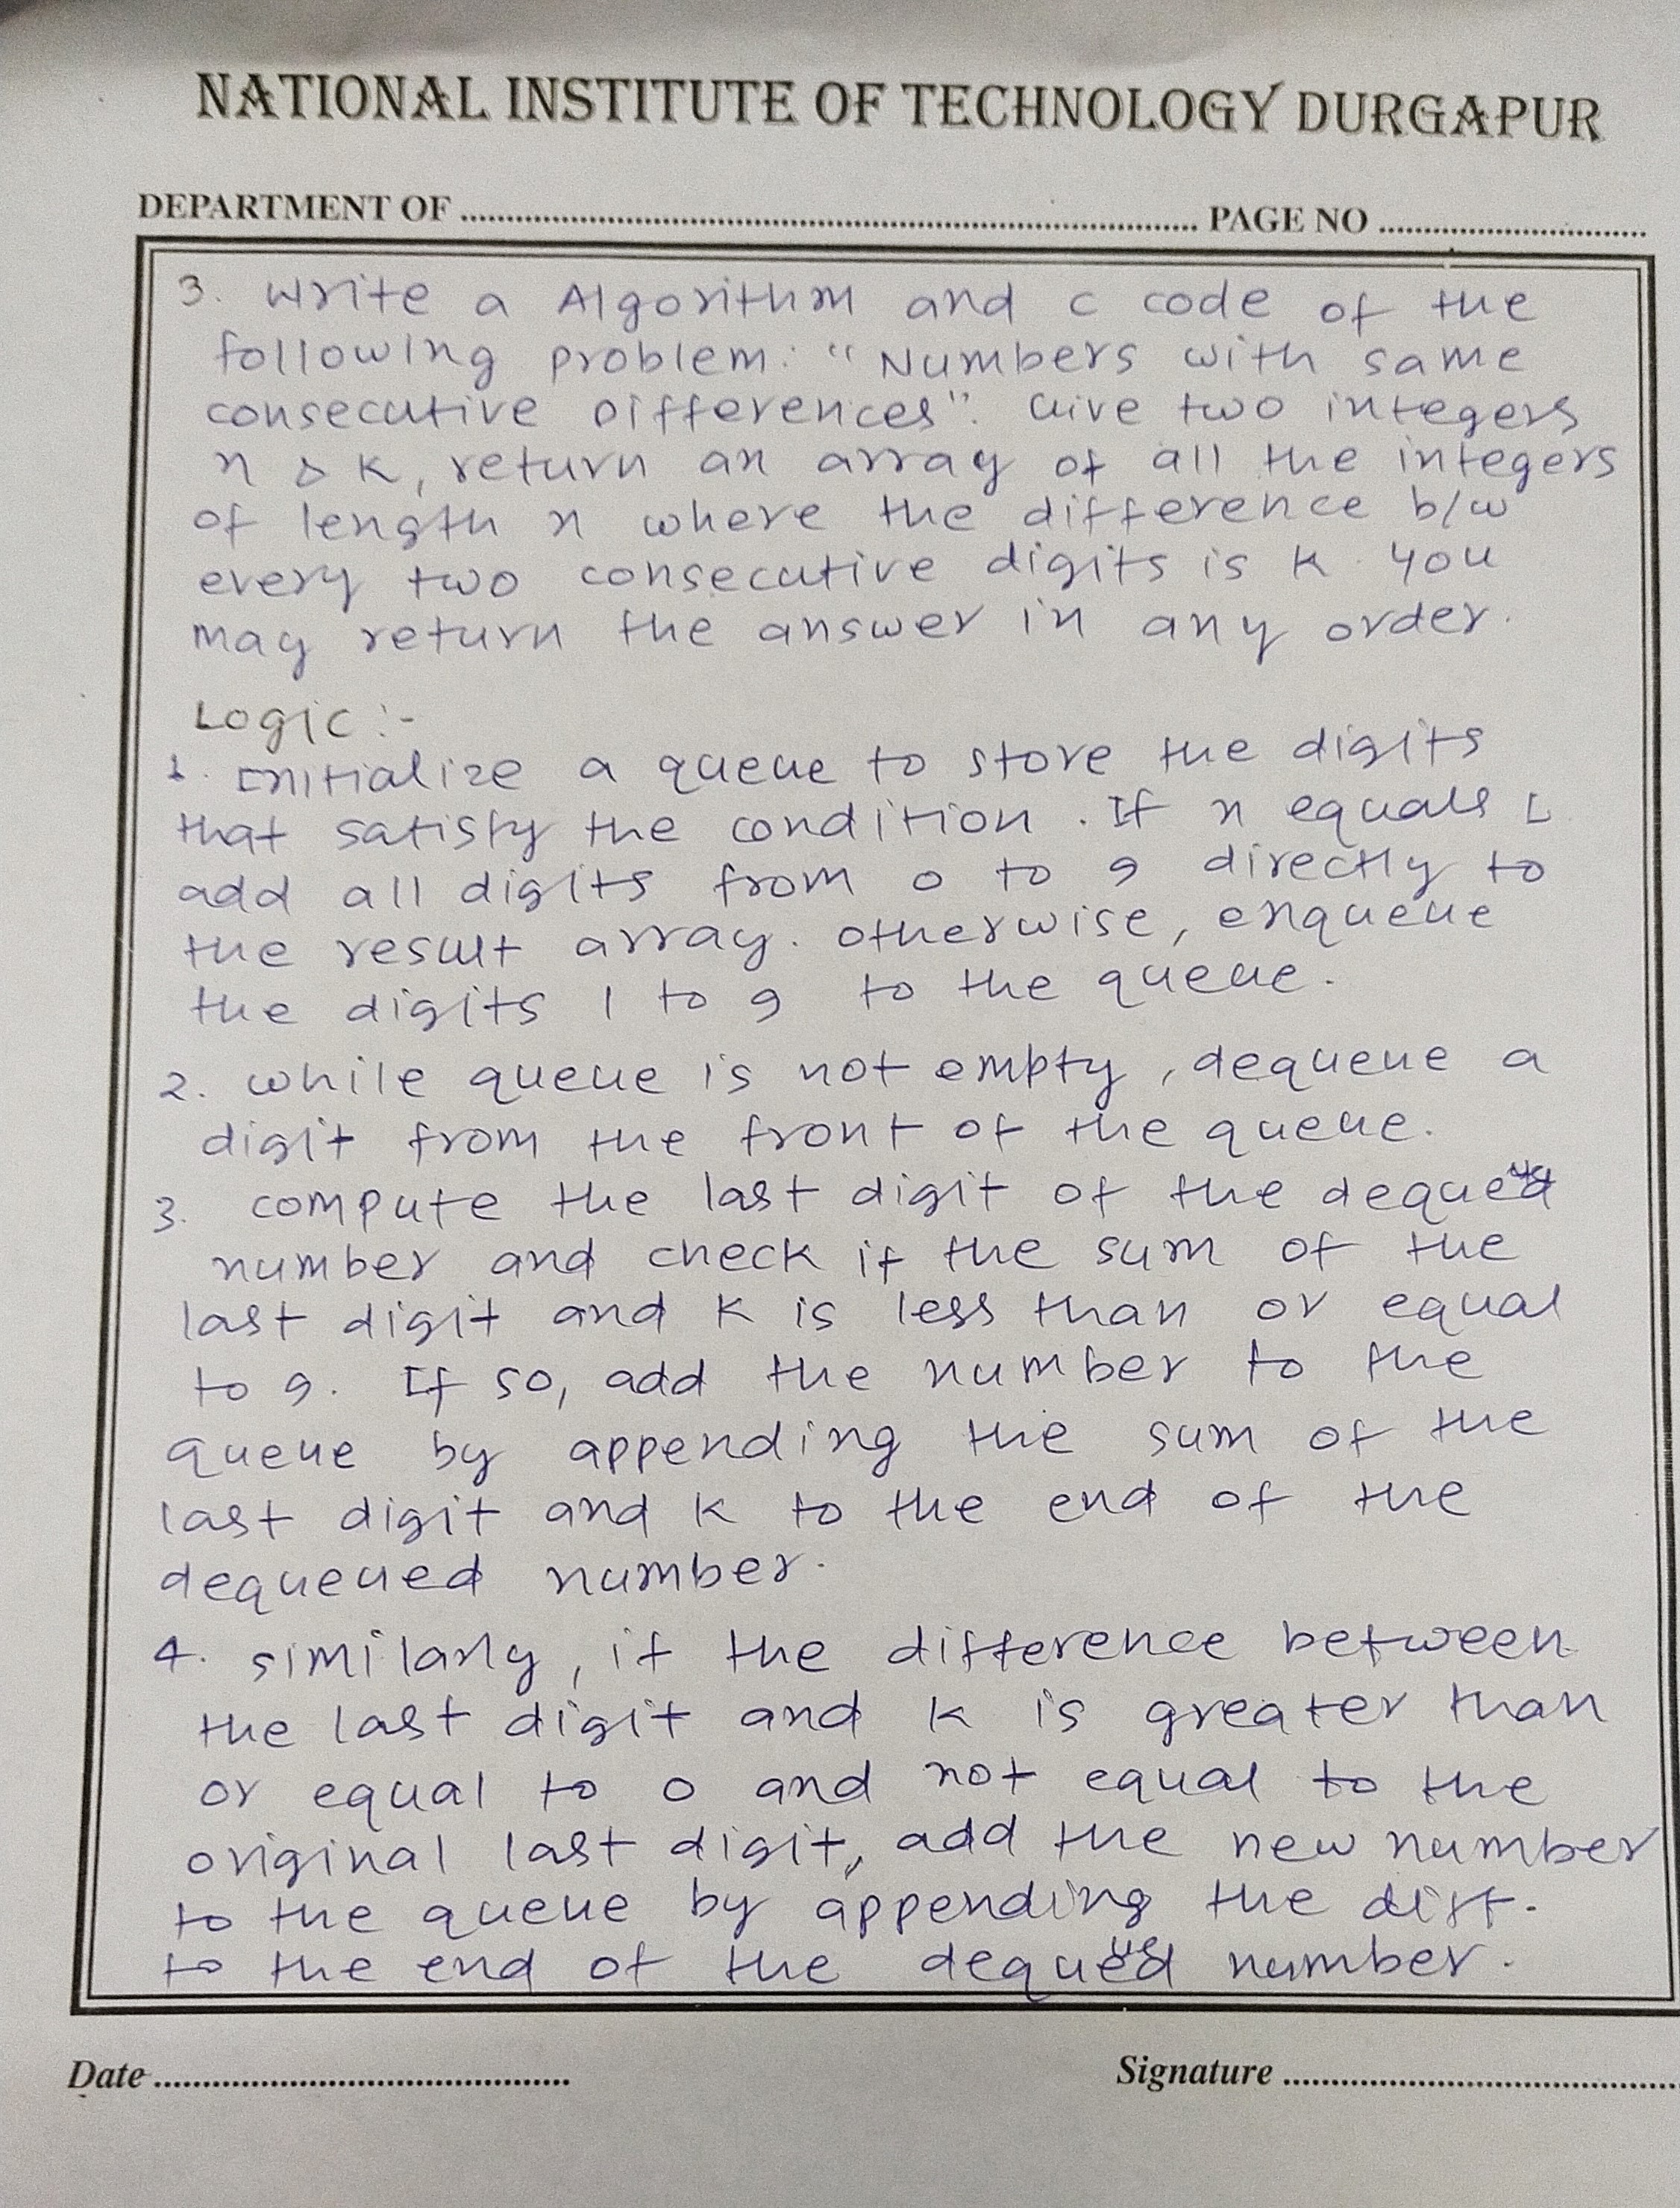 NATIONAL INSTITUTE OF TECHNOLOGY DURGAPUR
DEPARTMENT OF ........ PAGE NO ........
3. Write a Algorithm and C code of the
following problem: "Numbers with same
consecutive Differences". Give two integers
n & K, return an array of all the integers
of length n where the difference b/w
every two consecutive digits is K. You
may return the answer in any order.
Logic :-
1. Initialize a queue to store the digits
that satisfy the condition. If n equals 1
add all digits from 0 to 9 directly to
the result array. otherwise, enqueue
the digits 1 to 9 to the queue.
2. while queue is not empty, dequeue a
digit from the front of the queue.
3. compute the last digit of the dequeued
number and check if the sum of the
last digit and K is less than or equal
to 9. If so, add the number to the
queue by appending the sum of the
last digit and K to the end of the
dequeued number.
4. similarly, if the difference between
the last digit and K is greater than
or equal to 0 and not equal to the
original last digit, add the new number
to the queue by appending the diff.
to the end of the dequeued number.
Date ........ Signature ........